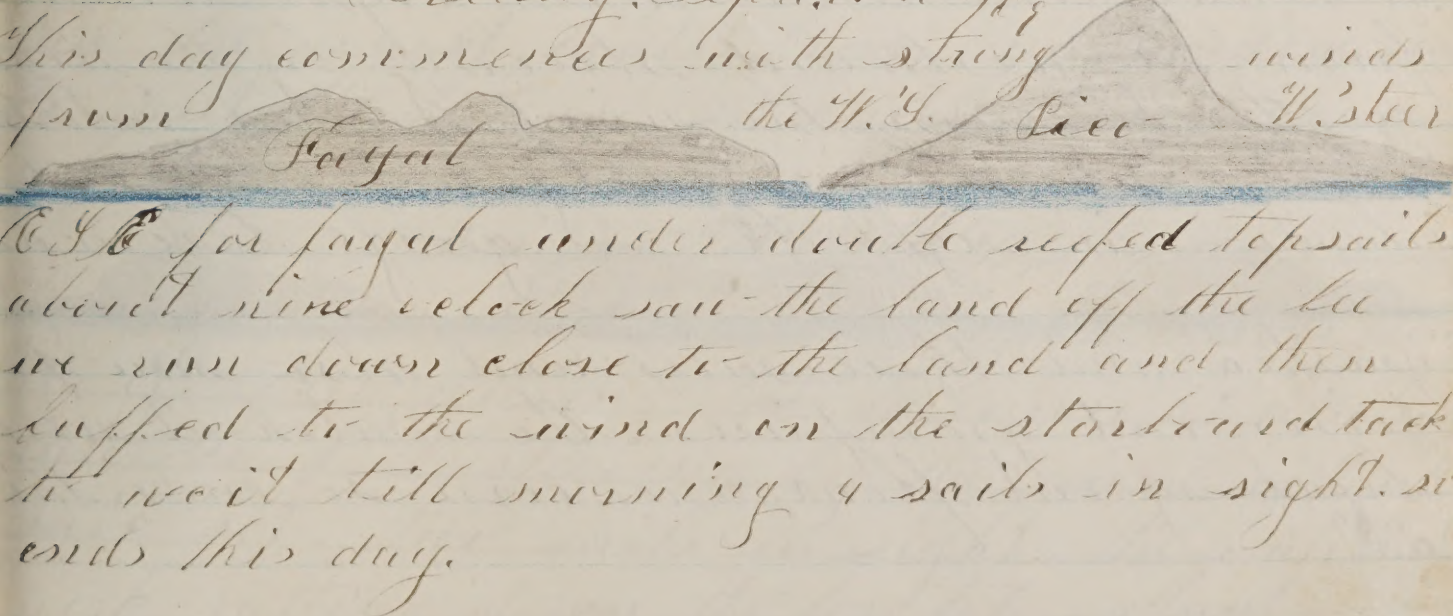 This day commences with strong winds
from the W.S. W. steer
Fayal Pico
E S E for fayal under double reefed topsails
about nine oclock saw the land off the lee
we run down close to the land and then
luffed to the wind on the starboard tack
to wait till morning 4 sails in sight. so
ends this day.